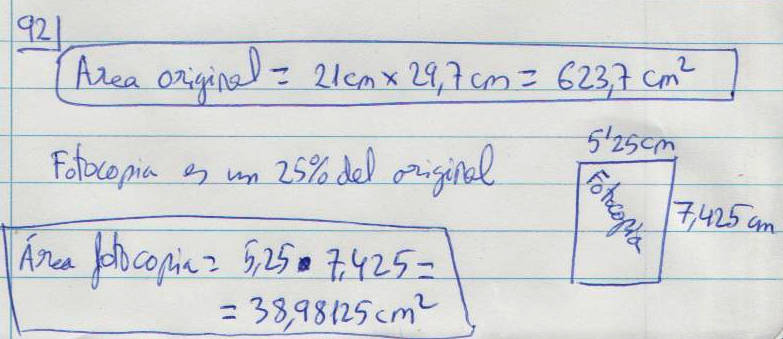 92
Area original = 21cm × 29,7cm = 623,7 cm²
Fotocopia es un 25% del original
5'25cm
Fotocopia
7,425 cm
Área fotocopia = 5,25 · 7,425 =
= 38,98125 cm²